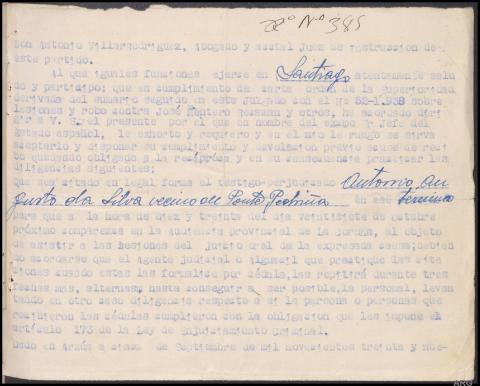 22º Nº 385
Don Antonio Villarrodriguez, Abogado y acctal Juez de instruccion de
este partido.
Al que iguales funciones ejerse en Santiago atentamente salu
do y participo; que en cumplimiento de carta orden de la Superioridad
derivada del sumario seguido en este Juzgado con el Nº 52-1.938 sobre
lesiones y robo contra José y otros, he acordado diri
gir a V. S. el presente por el que en nombre del Exmpo Sr. Jefe del
Estado español, le exhorto y requiero y en el mio le ruego se sirva
aceptarlo y disponer su cumplimiento y devolución previo acuse de reci
bo quedando obligado a la recíproca, y en su consecuencia practicar las
diligencias siguientes:
Que sea citado en legal forma el testigo-perjudicado Antonio Au
gusto da Silva vecino de Ponte Pedriña en ese termino
para que a la hora de diez y treinta del dia veintisiete de octubre
próximo comparezca en la audiencia provincial de La Coruña, al objeto
de asistir a las sesiones del juicio oral de la expresada causa; debien
do acordarse que el Agente judicial o Alguacil que practique las cita
ciones cuando estas las formalise por cédula, las repitirá durante tres
fechas mas, alternas hasta conseguir a ser posible, la personal, levan
tando en otro caso diligencia respecto a si la persona o personas que
recibieron las cédulas cumplieron con la obligacion que les impone el
artículo 173 de la Ley de Enjuiciamiento Criminal.
Dado en Arzúa a cinco de Septiembre de mil novecientos treinta y nue-
ARG